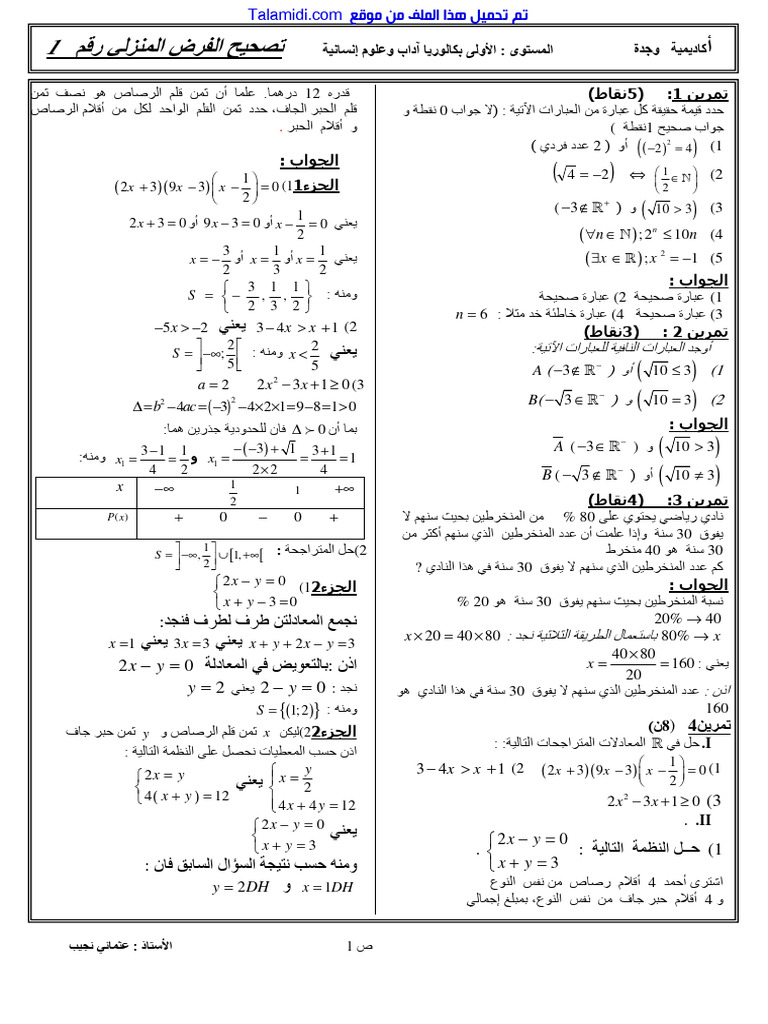 تم تحميل هذا الملف من موقع Talamidi.com
أكاديمية وجدة
المستوى : الأولى بكالوريا آداب وعلوم إنسانية
تصحيح الفرض المنزلي رقم 1
تمرين 1: (5نقاط)
حدد قيمة حقيقة كل عبارة من العبارات الآتية : (لا جواب 0 نقطة و
جواب صحيح 1نقطة )
1) ((−2)² = 4) أو ( 2 عدد فردي )
2) (√4 = −2) ⇔ (1/2 ∈ ℕ)
3) (√10 > 3) و (−3 ∉ ℝ⁺)
4) (∀n ∈ ℕ); 2ⁿ ≤ 10n
5) (∃x ∈ ℝ); x² = −1
الجواب :
1) عبارة صحيحة 2) عبارة صحيحة
3) عبارة خاطئة 4) عبارة صحيحة خد مثلا : n = 6
تمرين 2 : (3نقاط)
أوجد العبارات النافية للعبارات الآتية:
1) (√10 ≤ 3) أو A (−3 ∉ ℝ⁻)
2) (√10 = 3) و B(−√3 ∈ ℝ⁻)
الجواب :
(√10 > 3) و A̅ (−3 ∈ ℝ⁻)
(√10 ≠ 3) أو B̅ (−√3 ∉ ℝ⁻)
تمرين 3: (4نقاط)
نادي رياضي يحتوي على 80 % من المنخرطين بحيث سنهم لا
يفوق 30 سنة وإذا علمت أن عدد المنخرطين الذي سنهم أكثر من
30 سنة هو 40 منخرط
كم عدد المنخرطين الذي سنهم لا يفوق 30 سنة في هذا النادي ?
الجواب :
نسبة المنخرطين بحيث سنهم يفوق 30 سنة هو 20 %
20% → 40
80% → x باستعمال الطريقة الثلاثية نجد : x×20 = 40×80
يعني : x = (40×80)/20 = 160
اذن : عدد المنخرطين الذي سنهم لا يفوق 30 سنة في هذا النادي هو
160
تمرين4 (8ن)
I. حل في ℝ المعادلات المتراجحات التالية: :
1) (2x+3)(9x−3)(x−1/2)=0 2) 3−4x > x+1
3) 2x²−3x+1≥0
II. .
1) حــل النظمة التالية : {2x − y = 0
x + y = 3 .
اشترى أحمد 4 أقلام رصاص من نفس النوع
و 4 أقلام حبر جاف من نفس النوع، بمبلغ إجمالي
قدره 12 درهما. علما أن ثمن قلم الرصاص هو نصف ثمن
قلم الحبر الجاف، حدد ثمن القلم الواحد لكل من أقلام الرصاص
و أقلام الحبر .
الجواب :
الجزء1 1) (2x+3)(9x−3)(x−1/2)=0
يعني x−1/2=0 أو 9x−3=0 أو 2x+3=0
يعني x=1/2 أو x=1/3 أو x=−3/2
ومنه : S = {−3/2, 1/3, 1/2}
2) 3−4x > x+1 يعني −5x > −2
يعني x < 2/5 ومنه : S = ]−∞; 2/5[
3) 2x²−3x+1≥0 a = 2
Δ=b²−4ac=(−3)²−4×2×1=9−8=1>0
بما أن Δ ≻ 0 فان للحدودية جذرين هما:
x₁ = (−(−3)+√1)/(2×2) = (3+1)/4 = 1 و x₁ = (3−1)/4 = 1/2 ومنه:
x −∞ 1/2 1 +∞
P(x) + 0 − 0 +
2)حل المتراجحة : S = ]−∞, 1/2] ∪ [1, +∞[
الجزء2 1) {2x − y = 0
x + y − 3 = 0
نجمع المعادلتن طرف لطرف فنجد:
x + y + 2x − y = 3 يعني 3x = 3 يعني x = 1
اذن :بالتعويض في المعادلة 2x − y = 0
نجد : 2 − y = 0 يعني y = 2
ومنه : S = {(1;2)}
الجزء2 2)ليكن x ثمن قلم الرصاص و y ثمن حبر جاف
اذن حسب المعطيات نحصل على النظمة التالية :
{x = y/2
4x + 4y = 12 يعني {2x = y
4(x + y) = 12
يعني {2x − y = 0
x + y = 3
ومنه حسب نتيجة السؤال السابق فان :
x = 1DH و y = 2DH
ص 1
الأستاذ : عثماني نجيب